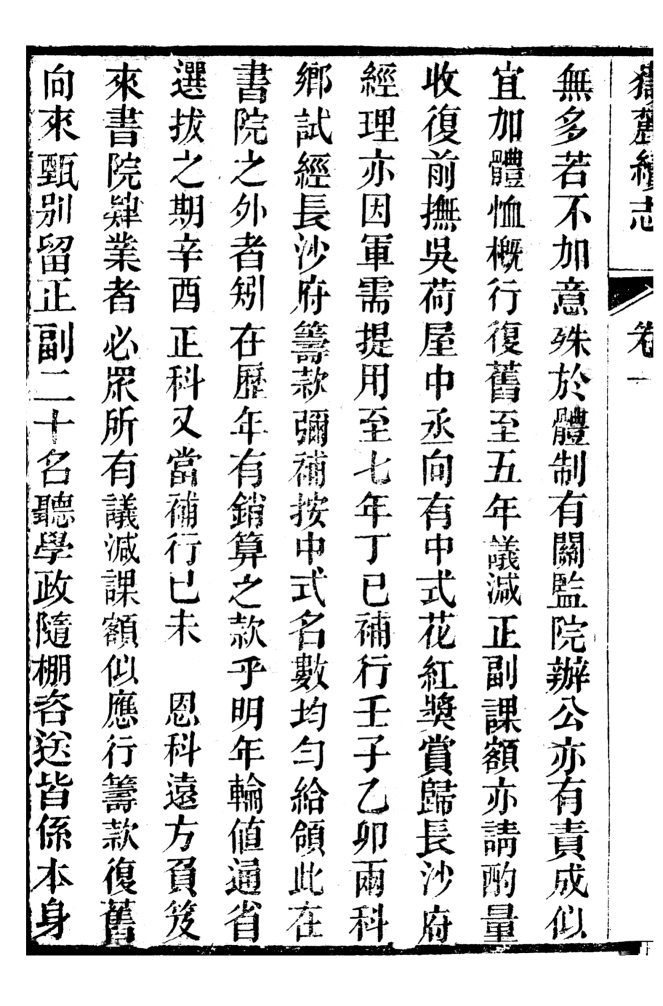 嶽麓續志
卷一
無多若不加意殊於體制有關監院辦公亦有責成似
宜加體恤概行復舊至五年議減正副課額亦請酌量
收復前撫吳荷屋中丞向有中式花紅獎賞歸長沙府
經理亦因軍需提用至七年丁巳補行壬子乙卯兩科
鄉試經長沙府籌款彌補按中式名數均勻給領此在
書院之外者矧在歷年有銷算之款乎明年輪值通省
選拔之期辛酉正科又當補行己未　恩科遠方負笈
來書院肄業者必眾所有議減課額似應行籌款復舊
向來甄别留正副二十名聽學政隨棚咨送皆係本身